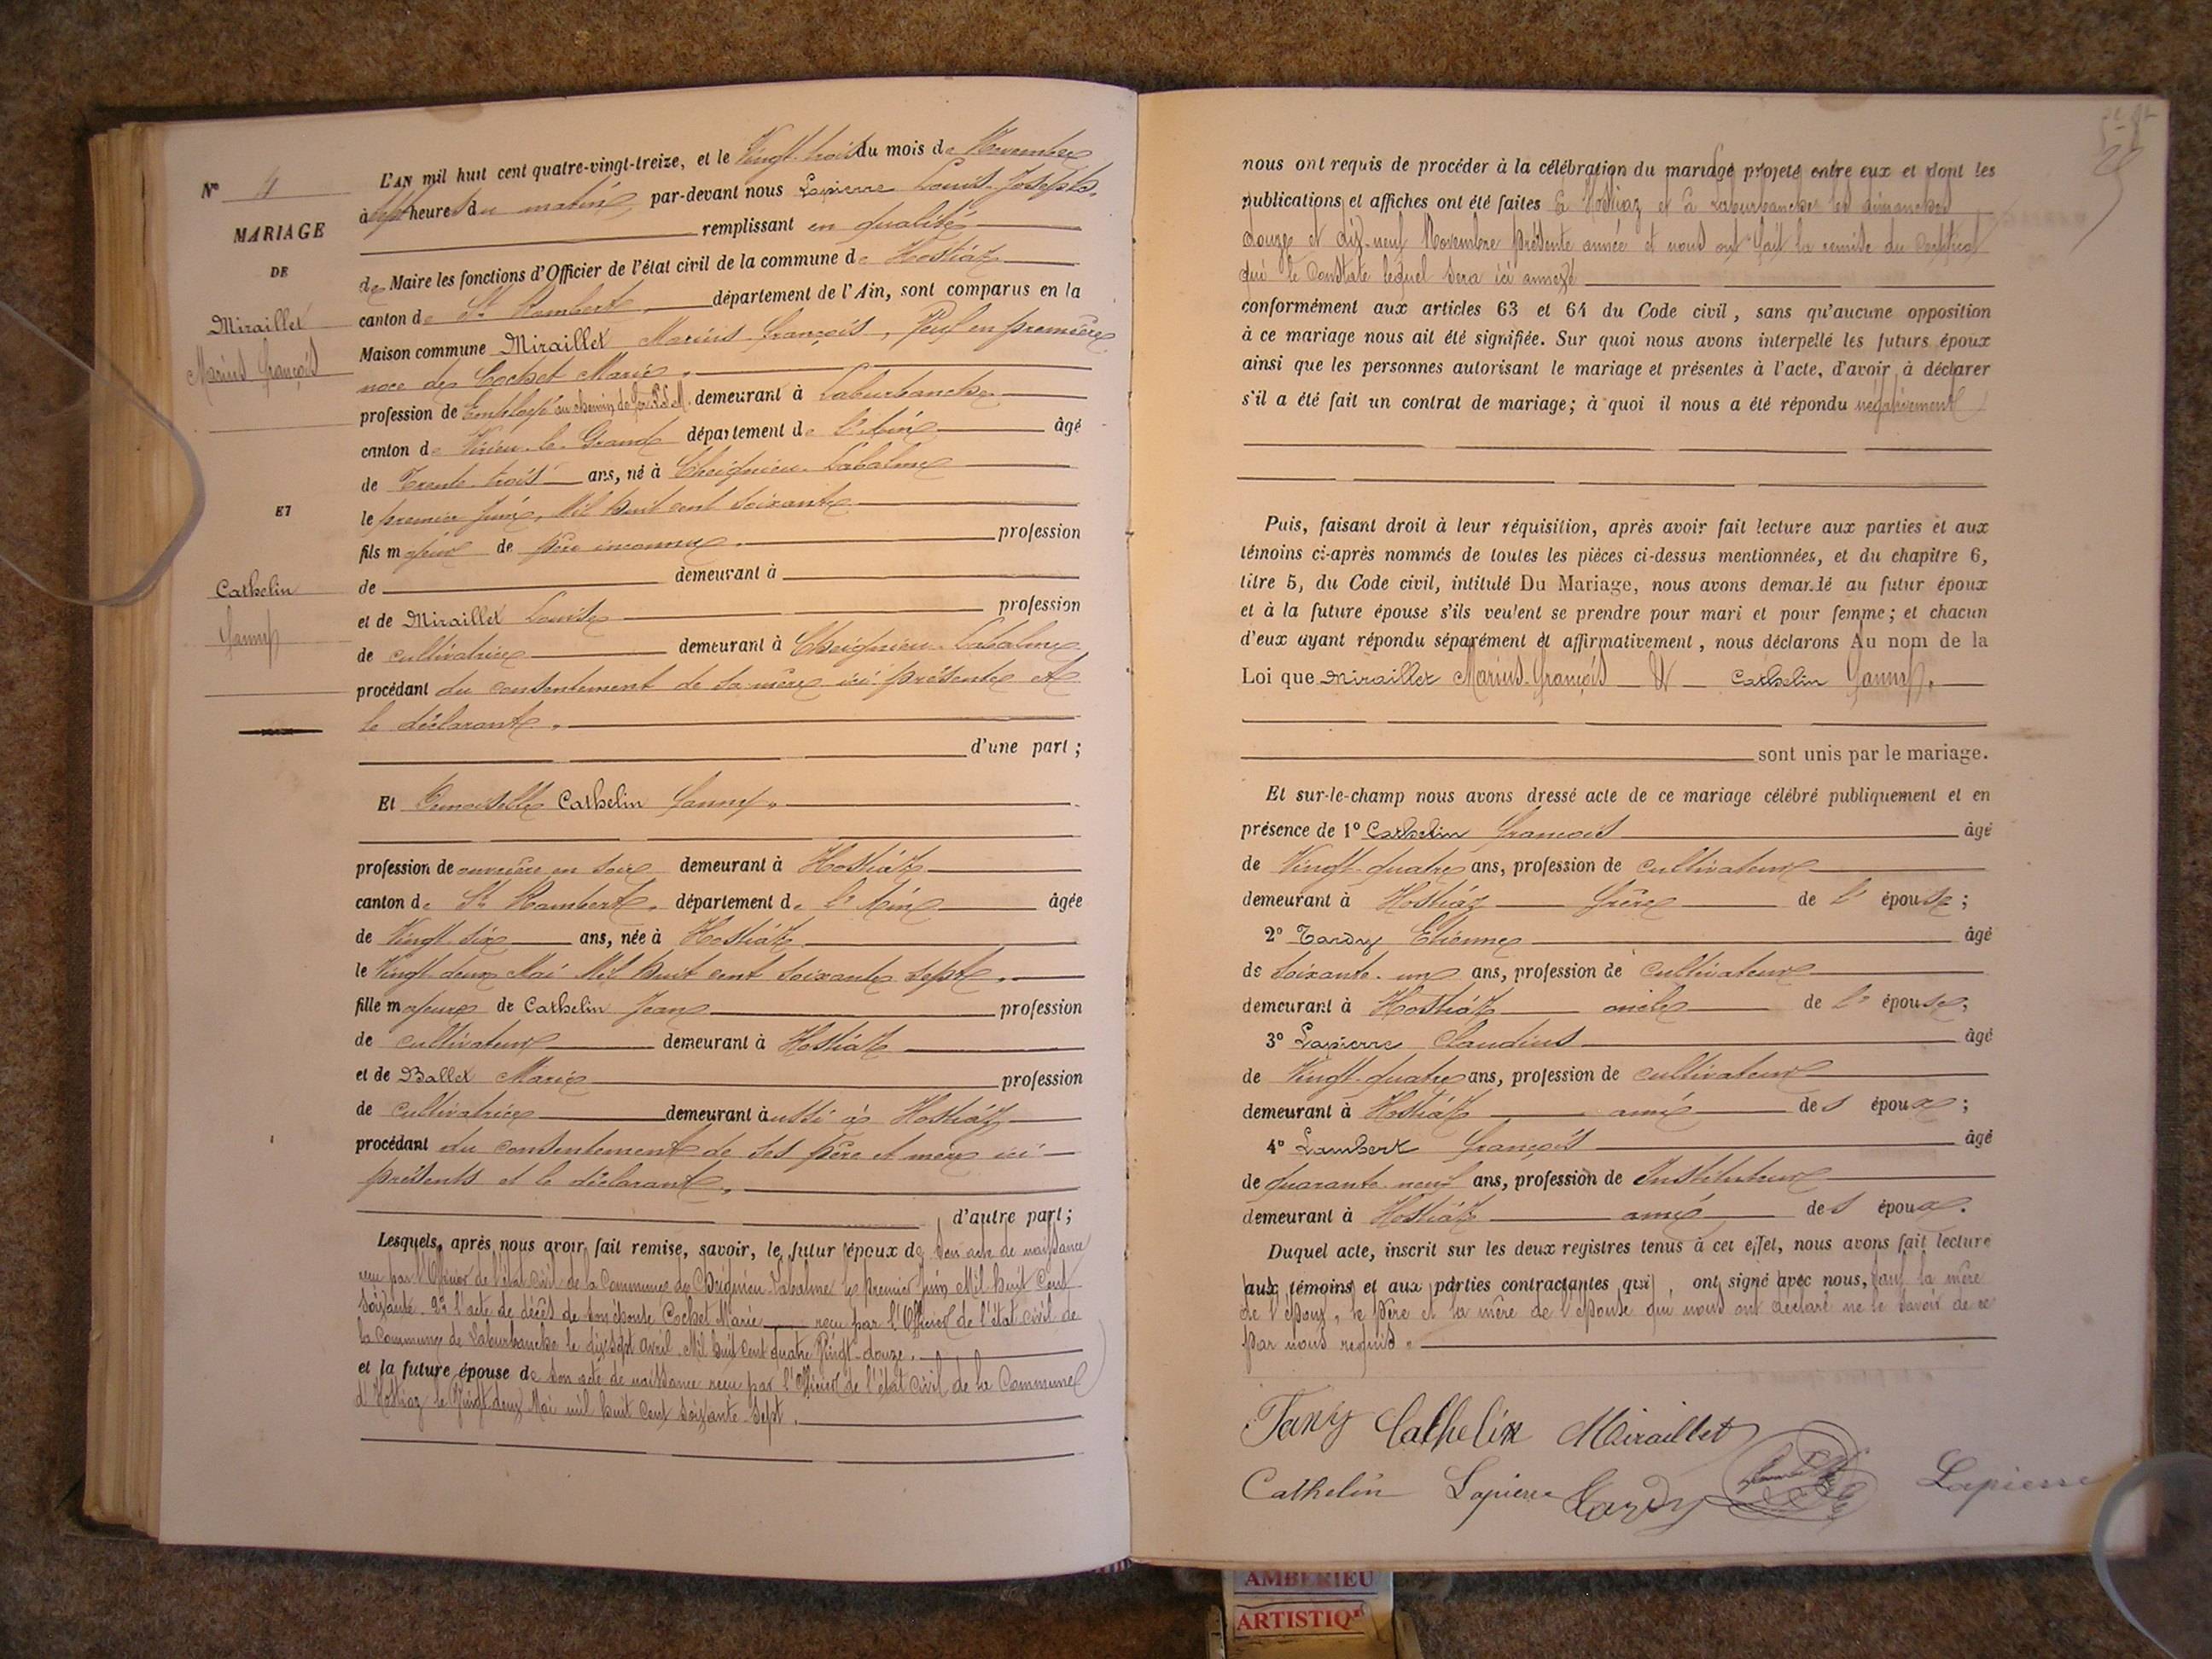 N° 4
MARIAGE
DE
Miraillet
Marius François
ET
Cathelin
Fanny
L'AN mil huit cent quatre-vingt-treize, et le Vingt-trois du mois de Novembre
à sept heures du matin, par-devant nous Lapierre Louis-Joseph,
remplissant en qualité
de Maire les fonctions d'Officier de l'état civil de la commune de Hostiaz
canton de St Rambert, département de l'Ain, sont comparus en la
Maison commune Miraillet Marius François, Veuf en premières
noce de Cochet Marie.
profession de Employé au chemin de fer P.L.M. demeurant à Laburbanche
canton de Virieu-le-Grand département de l'Ain âgé
de Trente-trois ans, né à Cheignieu-Labalme
le premier Juin, Mil huit cent soixante
fils majeur de père inconnu. profession
de demeurant à
et de Miraillet Louise profession
de cultivatrice demeurant à Cheignieu-Labalme
procédant du consentement de sa mère ici présente et
le déclarant.
d'une part ;
Et Demoiselle Cathelin Fanny.
profession de ouvrière en soie demeurant à Hostiaz
canton de St Rambert, département de l'Ain âgée
de Vingt-six ans, née à Hostiaz
le Vingt-deux Mai Mil huit cent soixante sept.
fille majeure de Cathelin Jean profession
de cultivateur demeurant à Hostiaz
et de Ballet Marie profession
de cultivatrice demeurant aussi à Hostiaz
procédant du consentement de ses père et mère ici
présents et le déclarant.
d'autre part ;
Lesquels, après nous avoir fait remise, savoir, le futur époux de son acte de naissance
reçu par l'Officier de l'état civil de la Commune de Cheignieu-Labalme le premier Juin Mil huit Cent
Soixante. 2° l'acte de décès de son épouse Cochet Marie reçu par l'Officier de l'état civil de
la commune de Laburbanche le dix sept avril Mil huit cent quatre Vingt-douze.
et la future épouse de son acte de naissance reçu par l'Officier de l'état civil de la Commune
d'Hostiaz le Vingt deux Mai mil huit Cent Soixante-Sept.
nous ont requis de procéder à la célébration du mariage projeté entre eux et dont les
publications et affiches ont été faites à Hostiaz et à Laburbanche les dimanches
douze et dix-neuf Novembre présente année et nous ont fait la remise du certificat
qui le constate lequel sera ici annexé
conformément aux articles 63 et 64 du Code civil, sans qu'aucune opposition
à ce mariage nous ait été signifiée. Sur quoi nous avons interpellé les futurs époux
ainsi que les personnes autorisant le mariage et présentes à l'acte, d'avoir à déclarer
s'il a été fait un contrat de mariage; à quoi il nous a été répondu négativement
Puis, faisant droit à leur réquisition, après avoir fait lecture aux parties et aux
témoins ci-après nommés de toutes les pièces ci-dessus mentionnées, et du chapitre 6,
titre 5, du Code civil, intitulé Du Mariage, nous avons demandé au futur époux
et à la future épouse s'ils veulent se prendre pour mari et pour femme; et chacun
d'eux ayant répondu séparément et affirmativement, nous déclarons Au nom de la
Loi que Miraillet Marius-François Et Cathelin Fanny.
sont unis par le mariage.
Et sur-le-champ nous avons dressé acte de ce mariage célébré publiquement et en
présence de 1° Cathelin François âgé
de Vingt-quatre ans, profession de cultivateur
demeurant à Hostiaz frère de l'épouse ;
2° Tardy Etienne âgé
de soixante-un ans, profession de cultivateur
demeurant à Hostiaz oncle de l'épouse ;
3° Lapierre Claudius âgé
de Vingt-quatre ans, profession de cultivateur
demeurant à Hostiaz ami des époux ;
4° Lambert François âgé
de quarante-neuf ans, profession de Instituteur
demeurant à Hostiaz ami des époux.
Duquel acte, inscrit sur les deux registres tenus à cet effet, nous avons fait lecture
aux témoins et aux parties contractantes qui, ont signé avec nous, sauf la mère
de l'époux, le père et la mère de l'épouse qui nous ont déclaré ne le savoir de ce
par nous requis.
Fany Cathelin Miraillet
Cathelin Lapierre Tardy Lapierre
AMBERIEU
ARTISTIQ